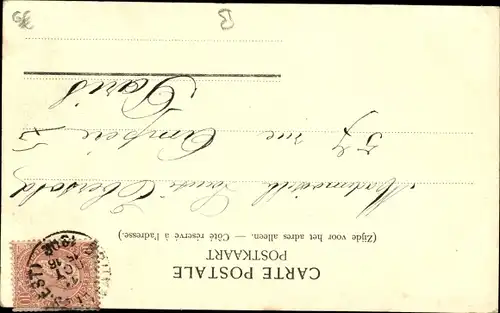 CARTE POSTALE
POSTKAART
(Zijde voor het adres alleen. — Côté réservé à l'adresse.)
Mademoiselle Louise Ebersold
57 rue Ampère
Paris
B